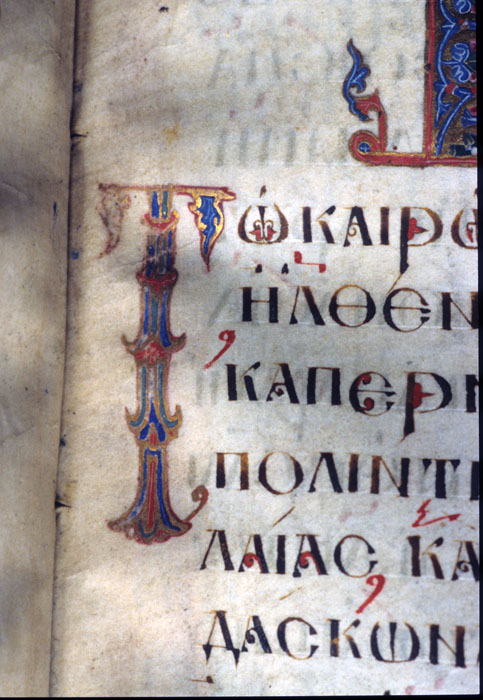 Τῷ ΚΑΙΡῷ
ἮΛΘΕΝ
ΚΑΠΕΡΝ
ΠΟΛΙΝΤ
ΛΑΊΑϹ ΚΑ
ΔΆϹΚΩΝ